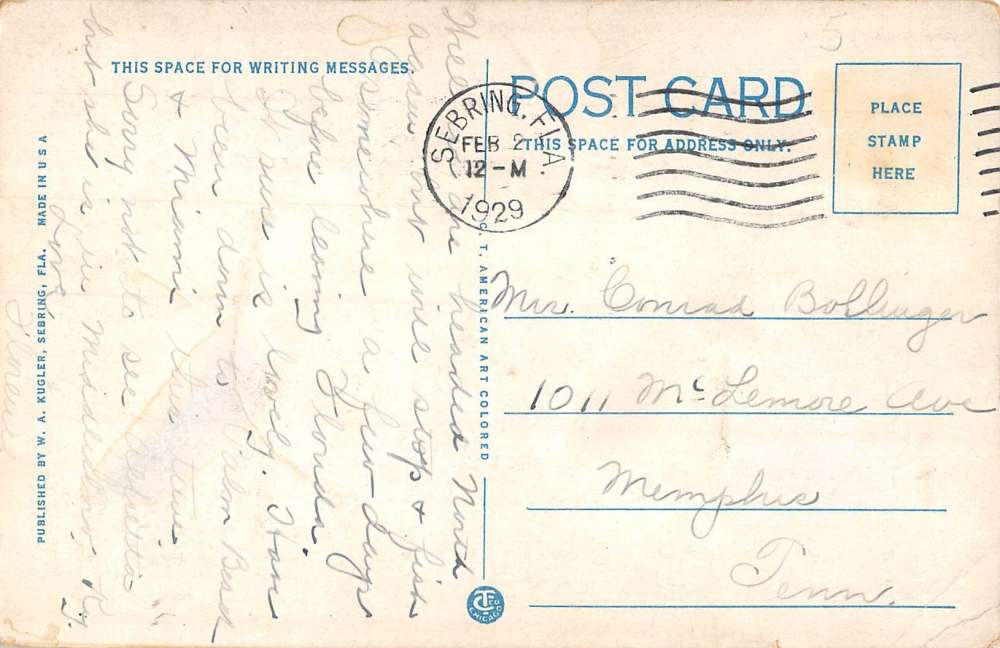 THIS SPACE FOR WRITING MESSAGES.
POST CARD
THIS SPACE FOR ADDRESS ONLY.
PLACE
STAMP
HERE
SEBRING, FLA.
FEB 2
12-M
1929
Well are headed North
again but will stop & fish
somewhere a few days
before leaving Florida.
It sure is lovely. Have
been down to Palm Beach
& Miami this time
Sorry not to see
but she is in Ky.
Love,
Mrs. Conrad Bollinger
1011 McLemore Ave
Memphis
Tenn.
PUBLISHED BY W. A. KUGLER, SEBRING, FLA. MADE IN U S A
C. T. AMERICAN ART COLORED
CT CO
CHICAGO
5